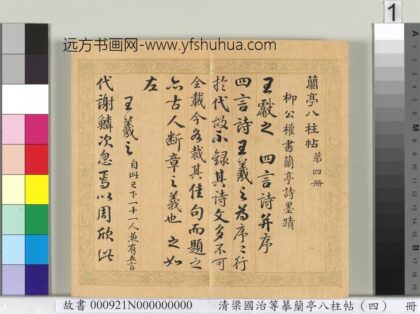 1
远方书画网-www.yfshuhua.com
蘭亭八柱帖 第四冊
柳公權書蘭亭詩墨蹟
王獻之 四言詩并序
四言詩王羲之為序序行
於代故不錄其詩文多不可
全載今各裁其佳句而題之
亦古人断章之義也 之如
左
王羲之 自此已下一十一人並有五言
代謝鱗次忽焉以周欣此
故書 000921N000000000 清梁國治等摹蘭亭八柱帖（四） 冊